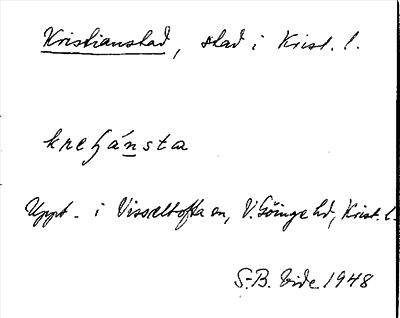 Kristianstad, stad i Krist. l.
kreʃánsta
Uppt. i Visseltofta sn, V. Göinge hd, Krist. l.
S-B. Vide 1948